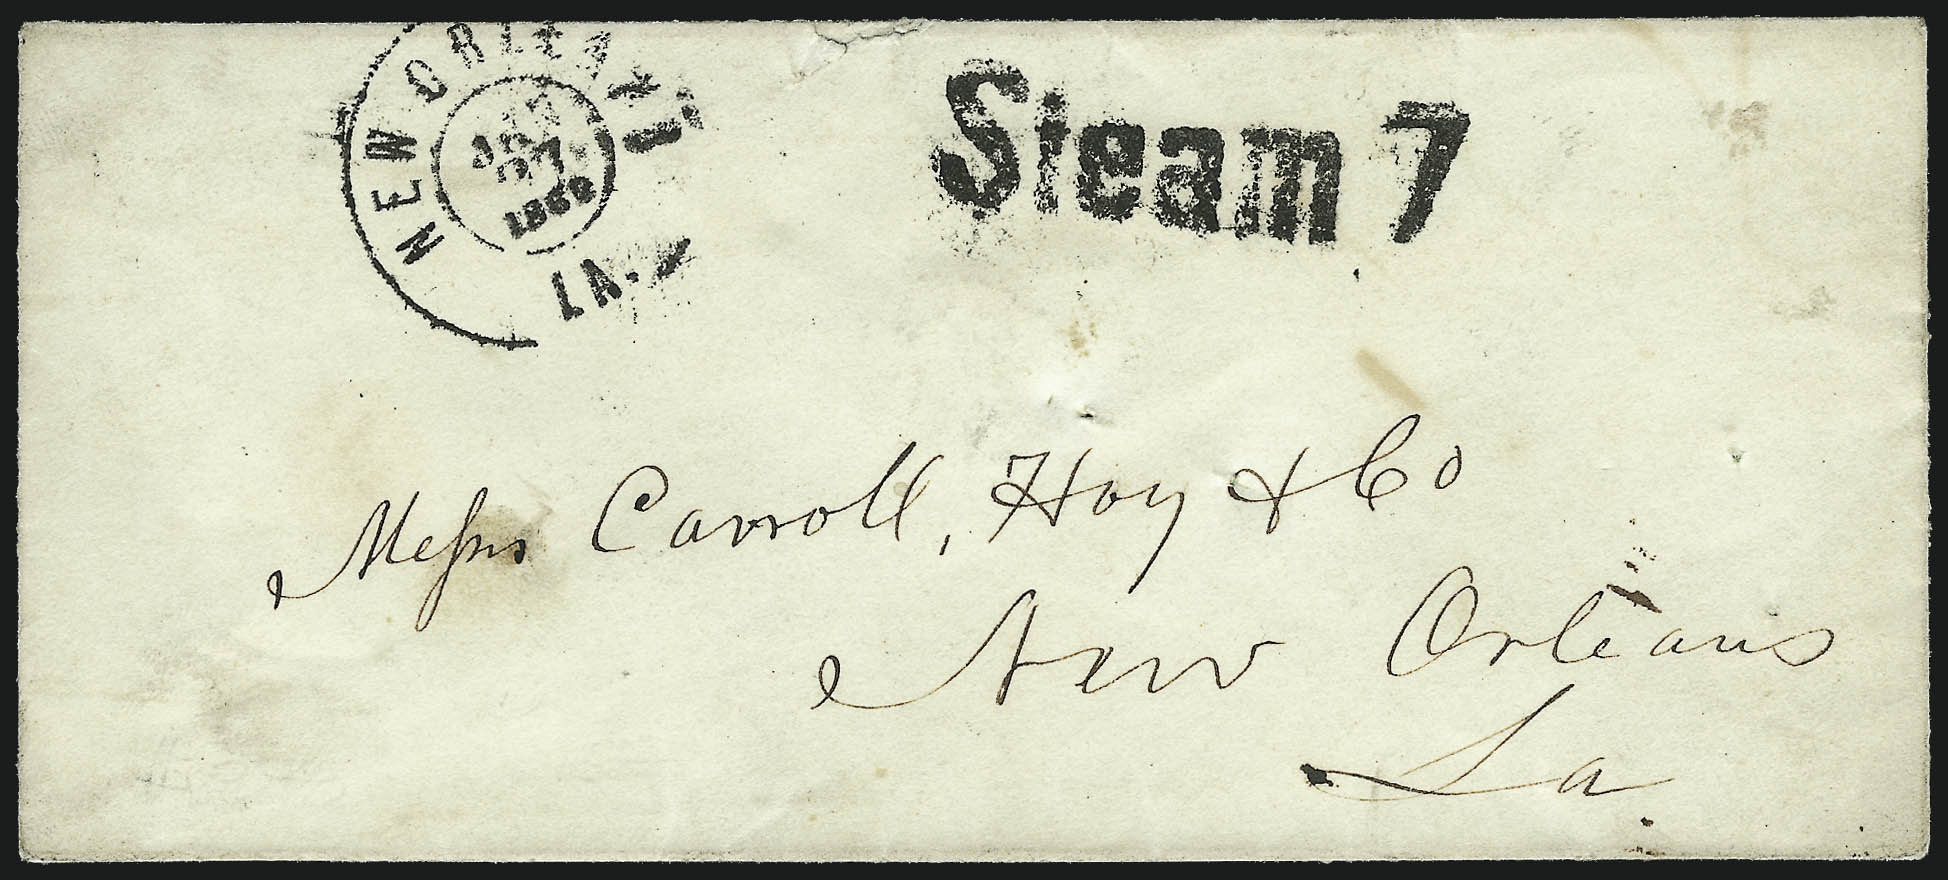 NEW ORLEANS
LA.
JAN
27
Steam 7
Messrs Carroll, Hoy & Co
New Orleans
La